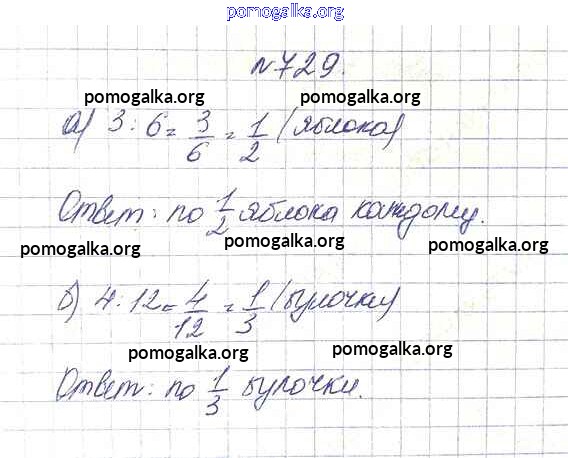 pomogalka.org
№729.
pomogalka.org pomogalka.org
а) 3 : 6 = 3/6 = 1/2 (яблока)
Ответ: по 1/2 яблока каждому.
pomogalka.org pomogalka.org pomogalka.org
б) 4 : 12 = 4/12 = 1/3 (булочки)
pomogalka.org pomogalka.org
Ответ: по 1/3 булочки.